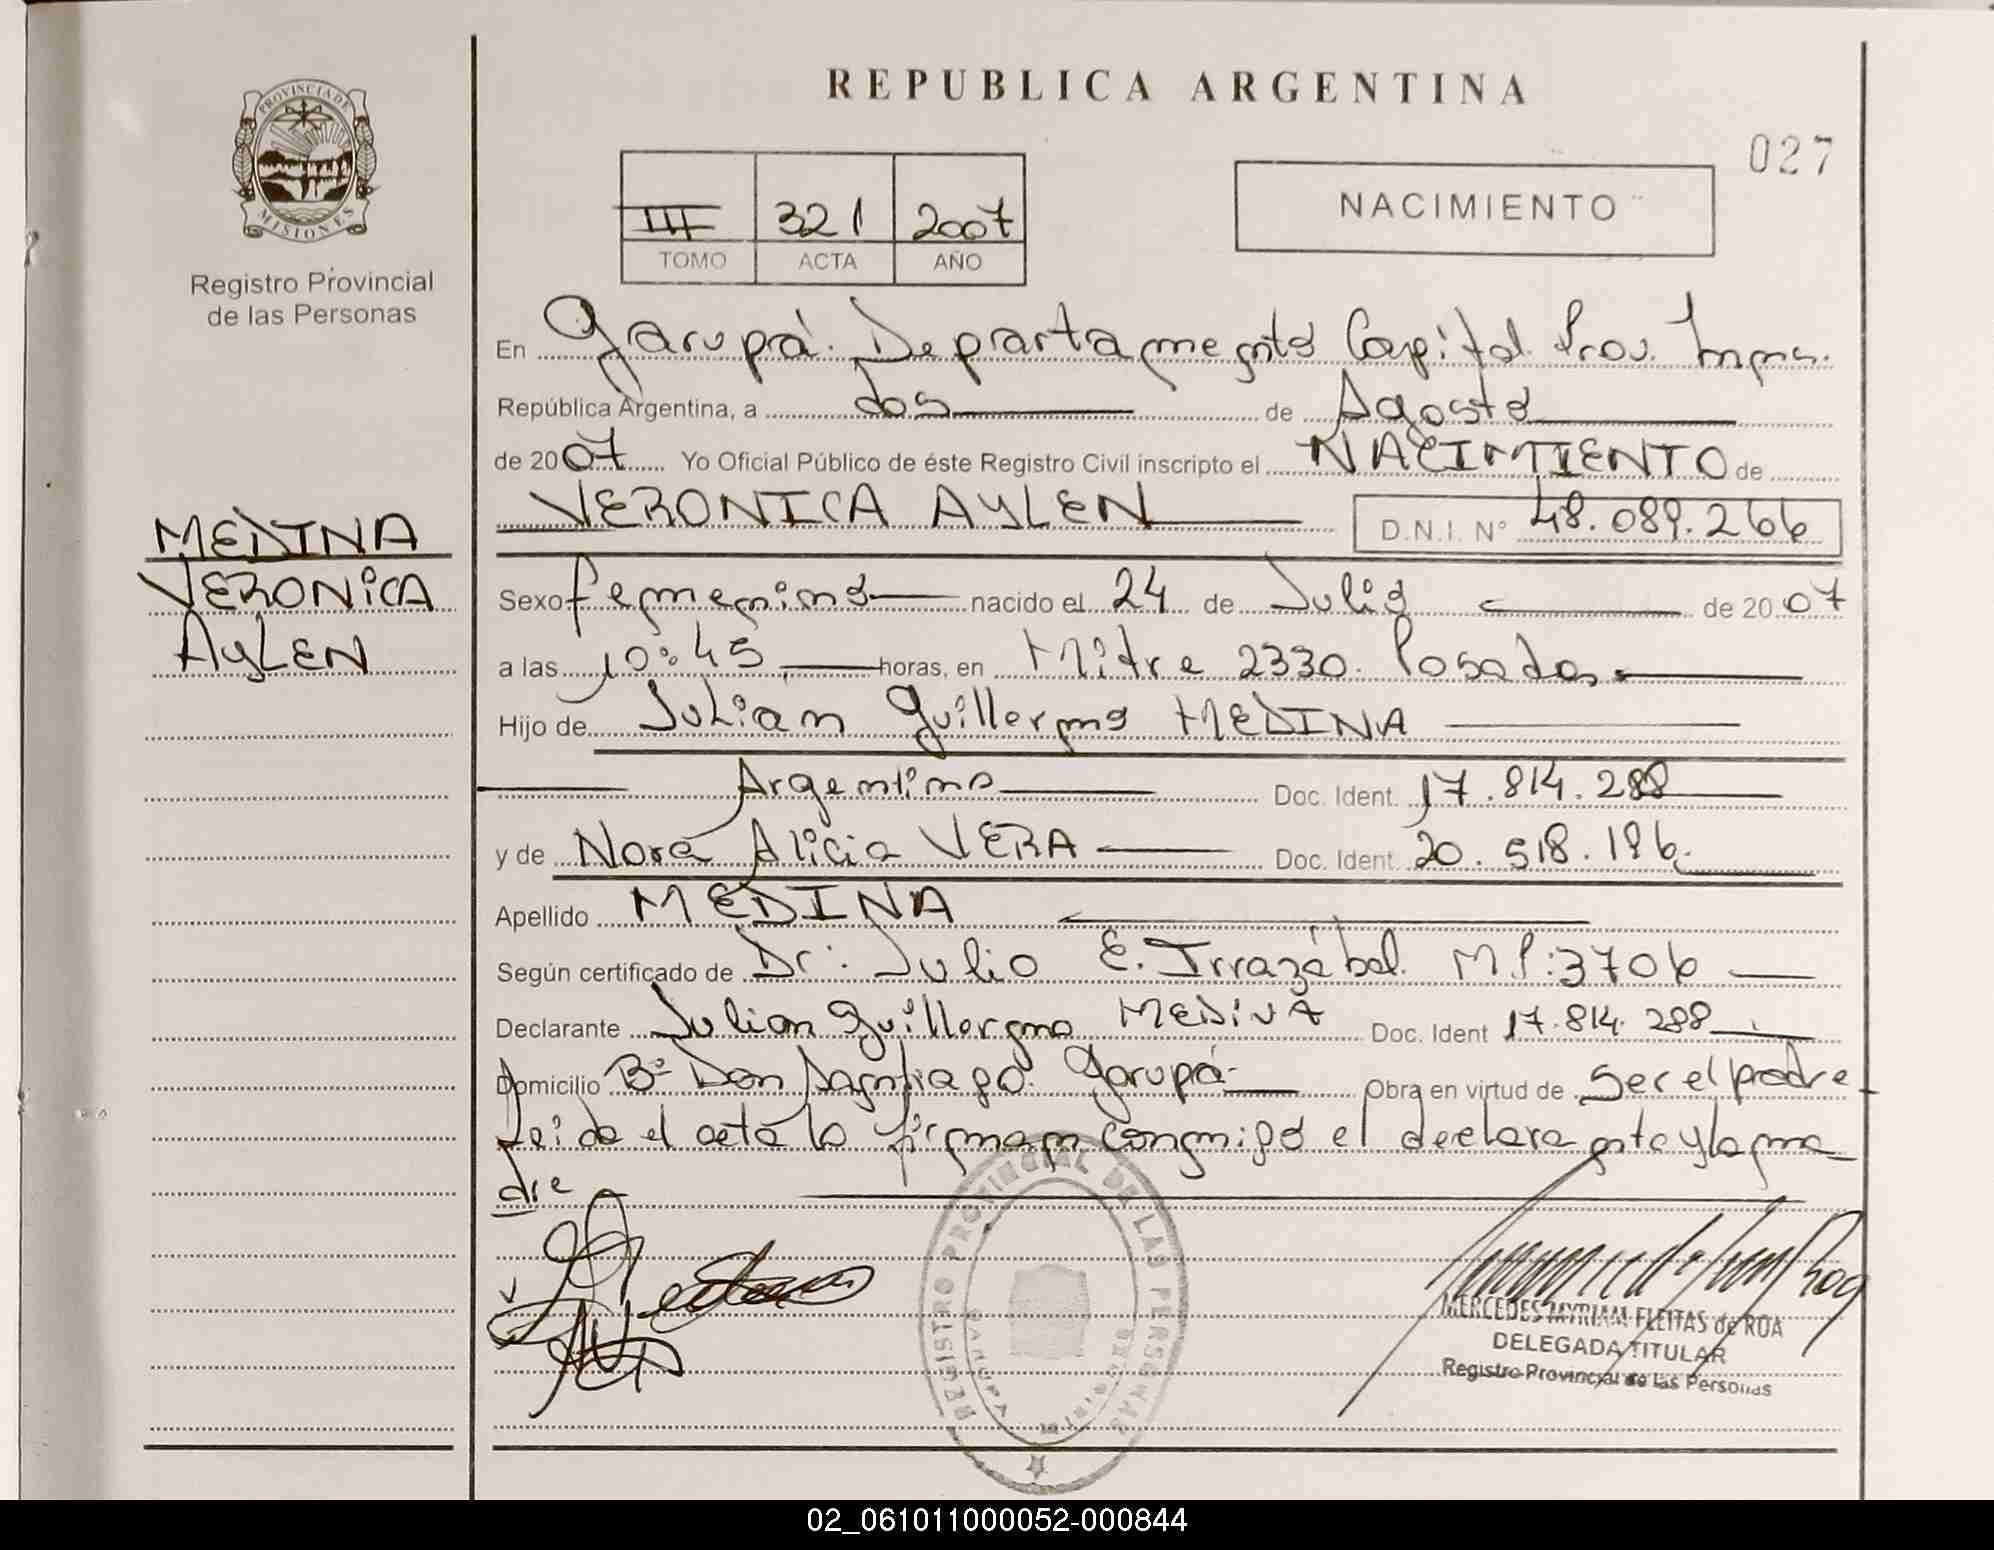 REPUBLICA ARGENTINA
027
PROVINCIA DE
MISIONES
Registro Provincial
de las Personas
III 321 2007
TOMO ACTA AÑO
NACIMIENTO
En Garupá. Departamento Capital Prov. Mnes.
República Argentina, a dos de Agosto
de 2007 Yo Oficial Público de éste Registro Civil inscripto el NACIMIENTO de
VERONICA AYLEN D.N.I. N° 48.089.266
MEDINA
VERONICA
AYLEN
Sexo femenino nacido el 24 de Julio de 2007
a las 10:45 horas, en Mitre 2330. Posadas.
Hijo de Julian Guillermo MEDINA
Argentino Doc. Ident. 17.814.288
y de Nora Alicia VERA Doc. Ident. 20.518.196.
Apellido MEDINA
Según certificado de Dr: Julio E. Irrazábal. M.P:3706
Declarante Julian Guillermo MEDINA Doc. Ident 17.814.288
Domicilio B° Don Santiago. Garupá- Obra en virtud de Ser el padre
Leida el acta la firman conmigo el declarante y la ma-
dre
REGISTRO PROVINCIAL DE LAS PERSONAS
GARUPA
MERCEDES MYRIAM FLEITAS de ROA
DELEGADA TITULAR
Registro Provincial de las Personas
02_061011000052-000844